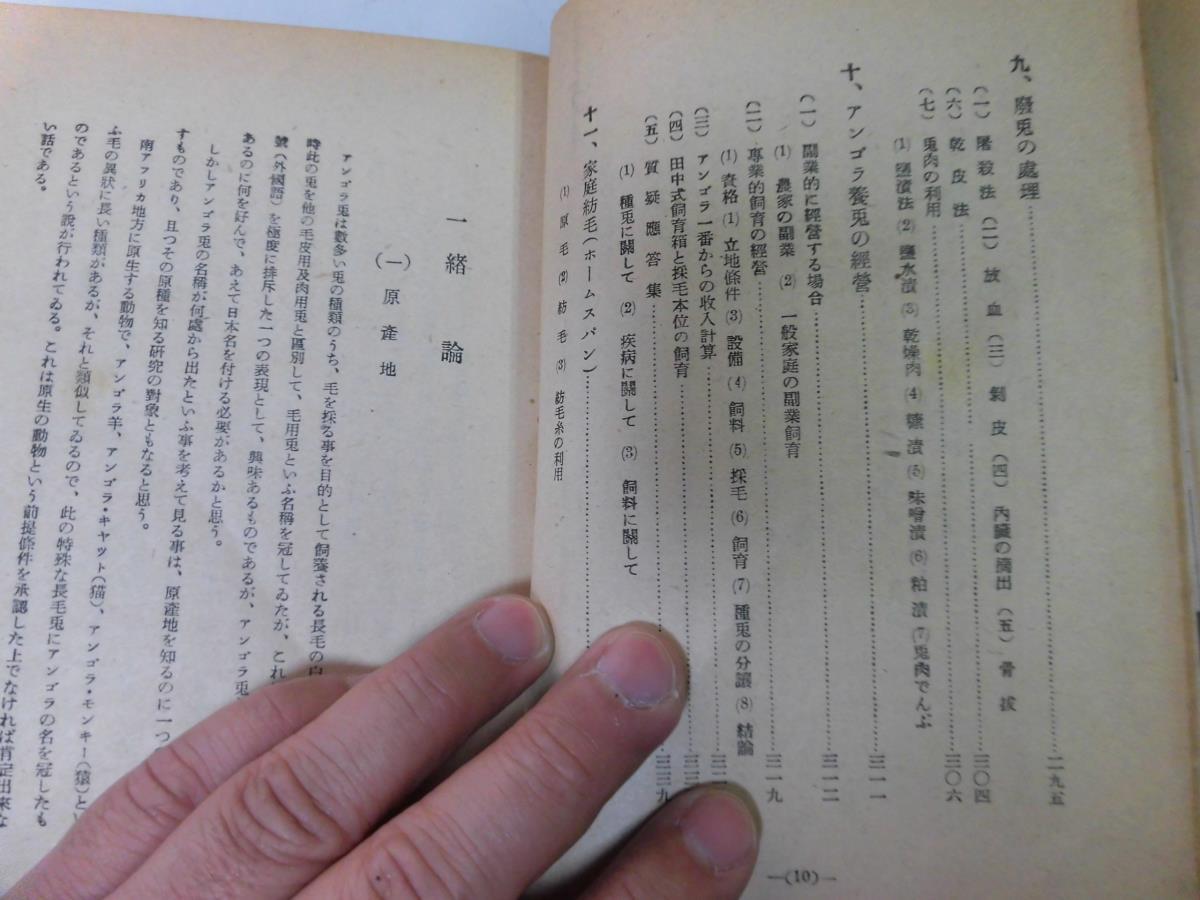 九、廢兎の處理……………………二九五
(一) 屠殺法 (二) 放血 (三) 剝皮 (四) 內臟の摘出 (五) 骨拔
(六) 乾皮法……………………三〇四
(七) 兎肉の利用……………………三〇六
(1) 鹽漬法 (2) 鹽水漬 (3) 乾燥肉 (4) 糠漬 (5) 味噌漬 (6) 粕漬 (7) 兎肉でんぶ
十、アンゴラ養兎の經營……………………三一一
(一) 副業的に經營する場合……………………三一二
(1) 農家の副業 (2) 一般家庭の副業飼育
(二) 專業的飼育の經營……………………三一九
(1) 資格 (1) 立地條件 (3) 設備 (4) 飼料 (5) 採毛 (6) 飼育 (7) 種兎の分讓 (8) 結論
(三) アンゴラ一番からの收入計算……………………三二
(四) 田中式飼育箱と採毛本位の飼育……………………三三
(五) 質疑應答集……………………三三九
(1) 種兎に關して (2) 疾病に關して (3) 飼料に關して
十一、家庭紡毛(ホームスパン)……………………
(1) 原毛 (2) 紡毛 (3) 紡毛糸の利用
—(10)—
一緖論
(一) 原產地
アンゴラ兎は數多い兎の種類のうち、毛を採る事を目的として飼養される長毛の白
時此の兎を他の毛皮用及肉用兎と區別して、毛用兎といふ名稱を冠してゐたが、これ
號(外國語)を極度に排斥した一つの表現として、興味あるものであるが、アンゴラ兎
あるのに何を好んで、あえて日本名を付ける必要があるかと思う。
しかしアンゴラ兎の名稱が何處から出たといふ事を考えて見る事は、原產地を知るのに一つ
すものであり、且つその原種を知る硏究の對象ともなると思う。
南アフリカ地方に原生する動物で、アンゴラ羊、アンゴラ・キヤツト(猫)、アンゴラ・モンキー(猿)とい
ふ毛の異狀に長い種類があるが、それと類似してゐるので、此の特殊な長毛兎にアンゴラの名を冠したも
のであるという說が行われてゐる。これは原生の動物という前提條件を承認した上でなければ肯定出來な
い話である。